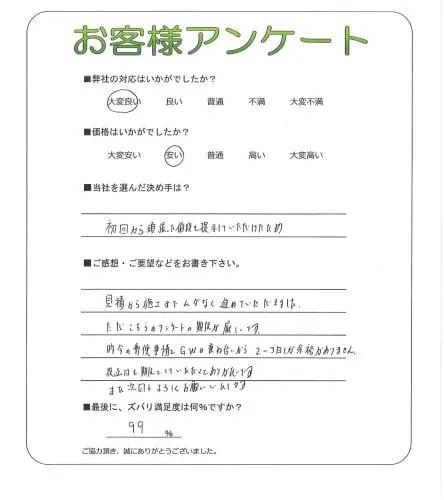 お客様アンケート
■弊社の対応はいかがでしたか？
大変良い 良い 普通 不満 大変不満
■価格はいかがでしたか？
大変安い 安い 普通 高い 大変高い
■当社を選んだ決め手は？
初回から頑張った値段を提示していただけたため
■ご感想・ご要望などをお書き下さい。
見積から施工までムダなく進めていただきました。
ただこちらのアンケートの期限が厳しいです。
昨今の郵便事情とGWの兼ね合いから2～3日しか余裕がありません。
投函日を期限としていただくとありがたいです
また次回もよろしくお願いいたします
■最後に、ズバリ満足度は何%ですか？
99 %
ご協力頂き、誠にありがとうございました。